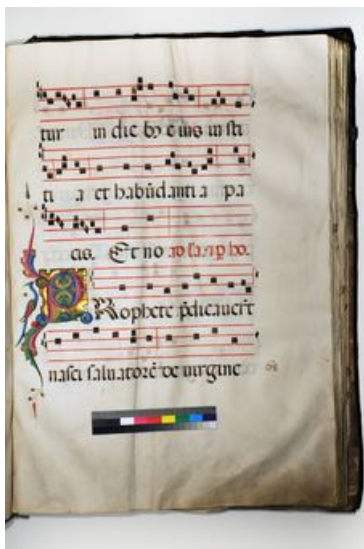 tur in die bꝫ e ius iu sti
ti a et habūdanti a pa
cis. Et no
PRophete p̄dicauerūt
nasci saluatorē de uirgine